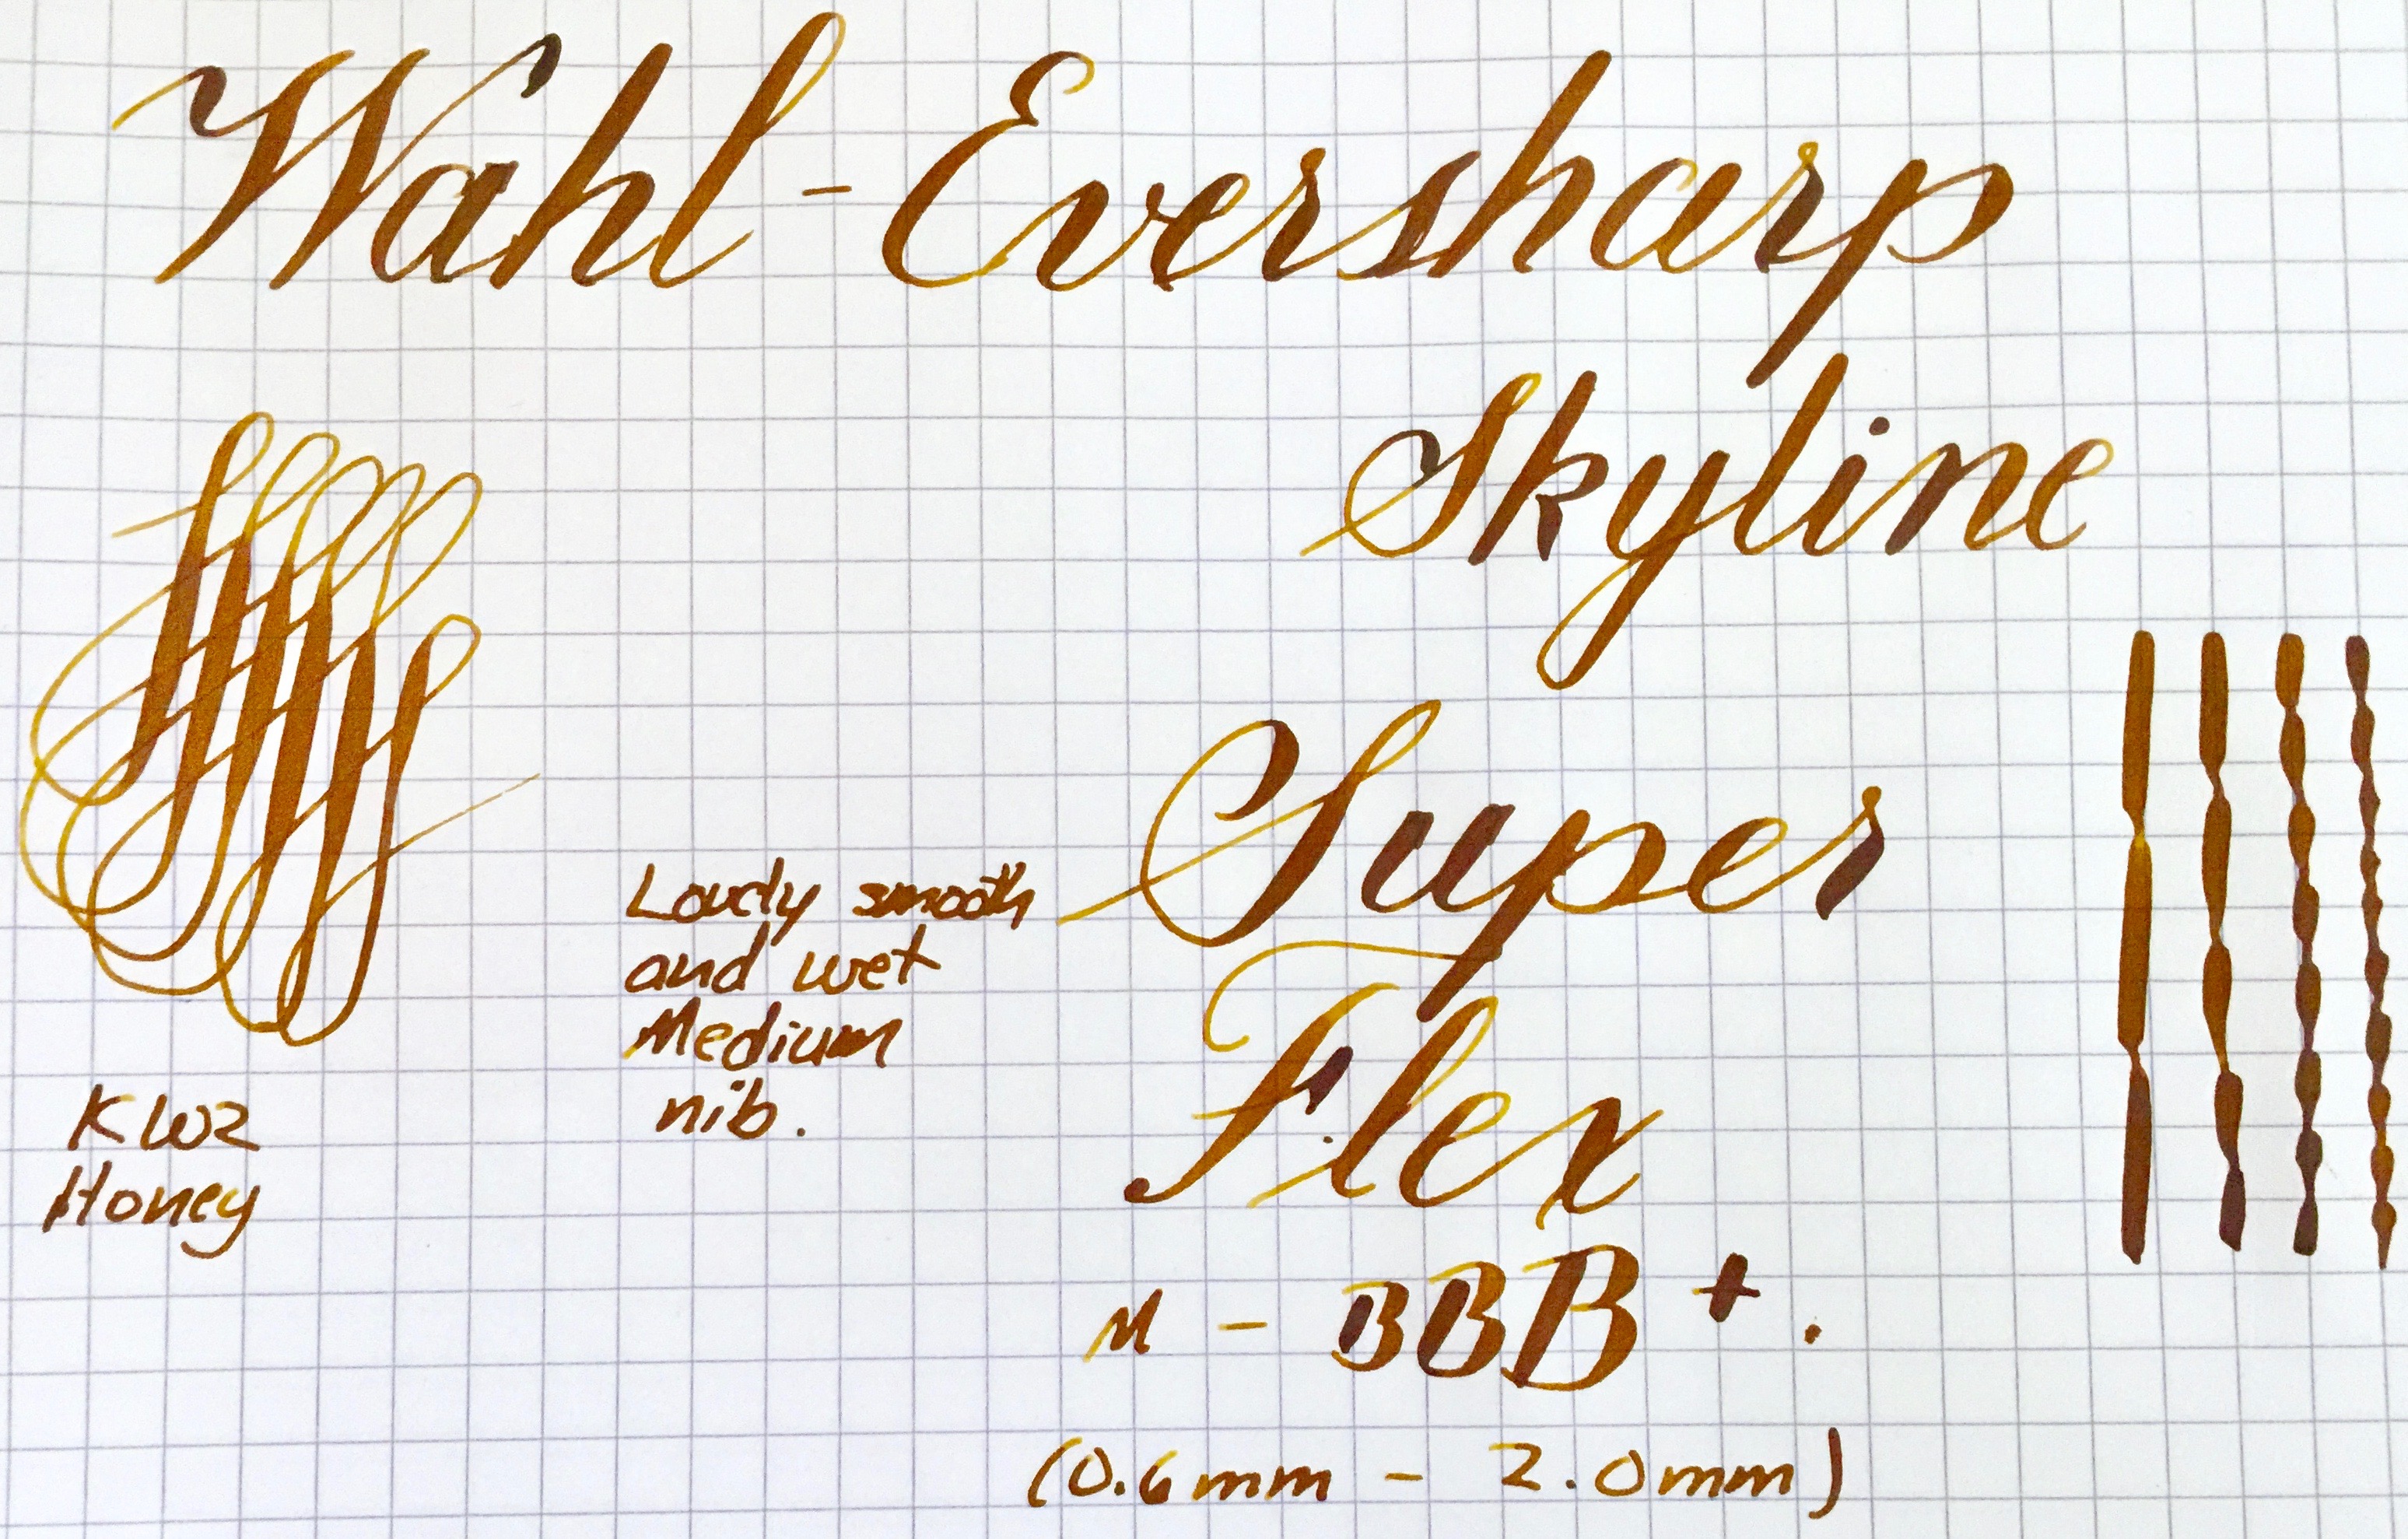 Wahl-Eversharp
Skyline
Super
Flex
M - BBB +.
(0.6mm - 2.0mm)
Lovely smooth
and wet
Medium
nib.
KWZ
Honey